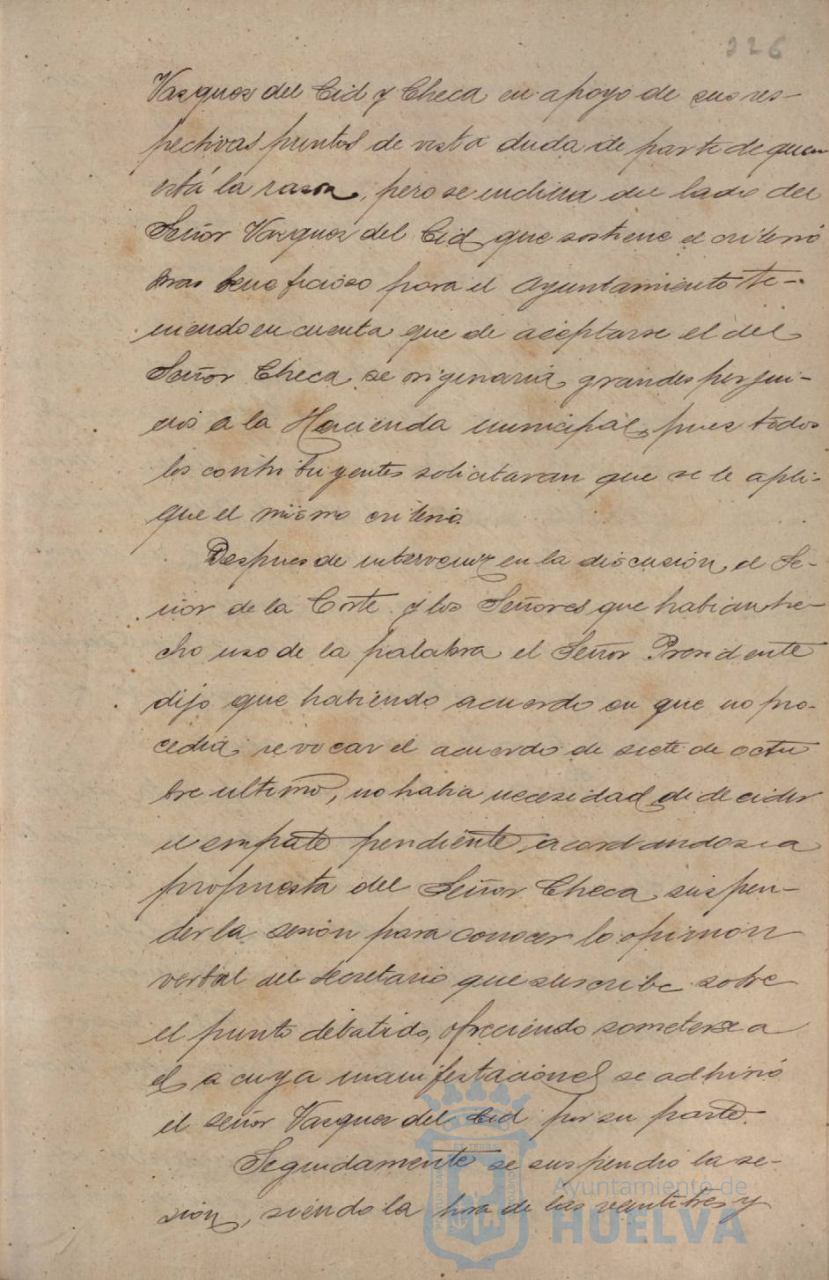 226
Vazquez del Cid y Checa en apoyo de sus res-
pectivas puntos de vista duda de parte de quien
está la razon, pero se inclina del lado del
Señor Vazquez del Cid que sostiene el criterio
mas beneficioso para el Ayuntamiento te-
niendo en cuenta que de aceptarse el del
Señor Checa se originaria grandes perjui-
cios a la Hacienda municipal, pues todos
los contribuyentes solicitaran que se le apli-
que el mismo criterio.
Despues de intervenir en la discusion, el Se-
ñor de la Corte y los Señores que habian he-
cho uso de la palabra el Señor Presidente
dijo que habiendo acuerdo en que no pro-
cedia revocar el acuerdo de siete de octu
bre ultimo, no habia necesidad de decidir
el empate pendiente acordandose a
propuesta del Señor Checa suspen-
der la sesión para conocer la opinion
verbal del Secretario que suscribe sobre
el punto debatido, ofreciendo someterse a
el a cuya manifestacion se adhirió
el señor Vazquez del Cid por su parte.
Seguidamente se suspendio la se-
sion, siendo la hora de las veintitres y
Ayuntamiento de
HUELVA